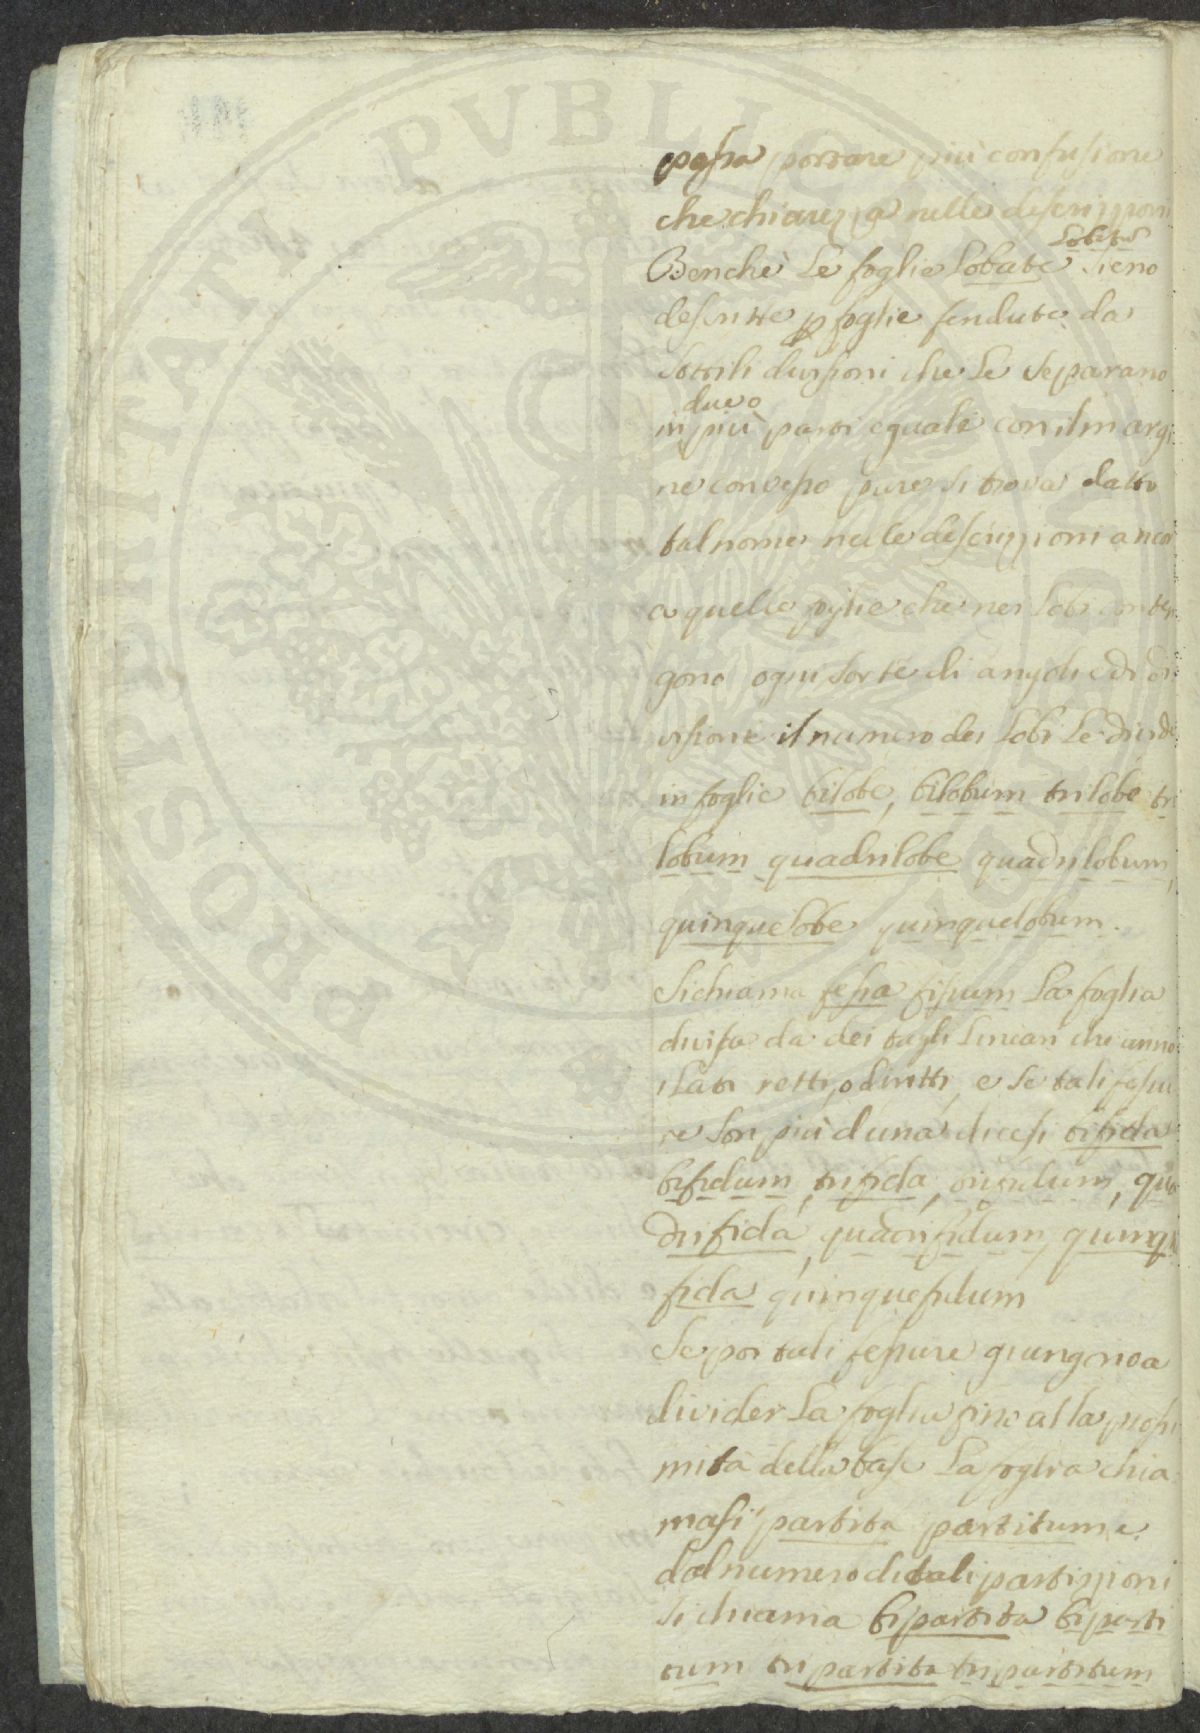 possa portare più confusione
che chiarezza nelle descrizzioni
Lobatus
Benchè Le foglie Lobate Sieno
descritte p foglie fendute da
Sottili divisioni che Le Separano
due o
in più parti eguali con il margi
ne convesso pure Si trova datto
tal nome nelle descrizzioni ancor
a quelle foglie che nei Lobi conten
gono ogni Sorte di angoli e di di
visione il numero dei Lobi Le divide
in foglie bilobe, bilobum trilobe tri
lobum quadrilobe quadrilobum,
quinquelobe quinquelobum.
Si chiama fessa fissum La foglia
divisa da dei tagli Lineari che anno
i Lati retti, o diritti, e Se tali fessu
re Son più d'una dicesi bifida
bifidum, trifida, trifidum, qua
drifida, quadrifidum, quinqu
fida quinquefidum
Se poi tali fessure giungono a
divider La foglia fino alla prossi
mità della base La foglia chia
masi partita partitum e
dal numero di tali partizzioni
Si chiama bipartita biparti
tum tripartita tripartitum
PROSPERITATI PVBLICAE